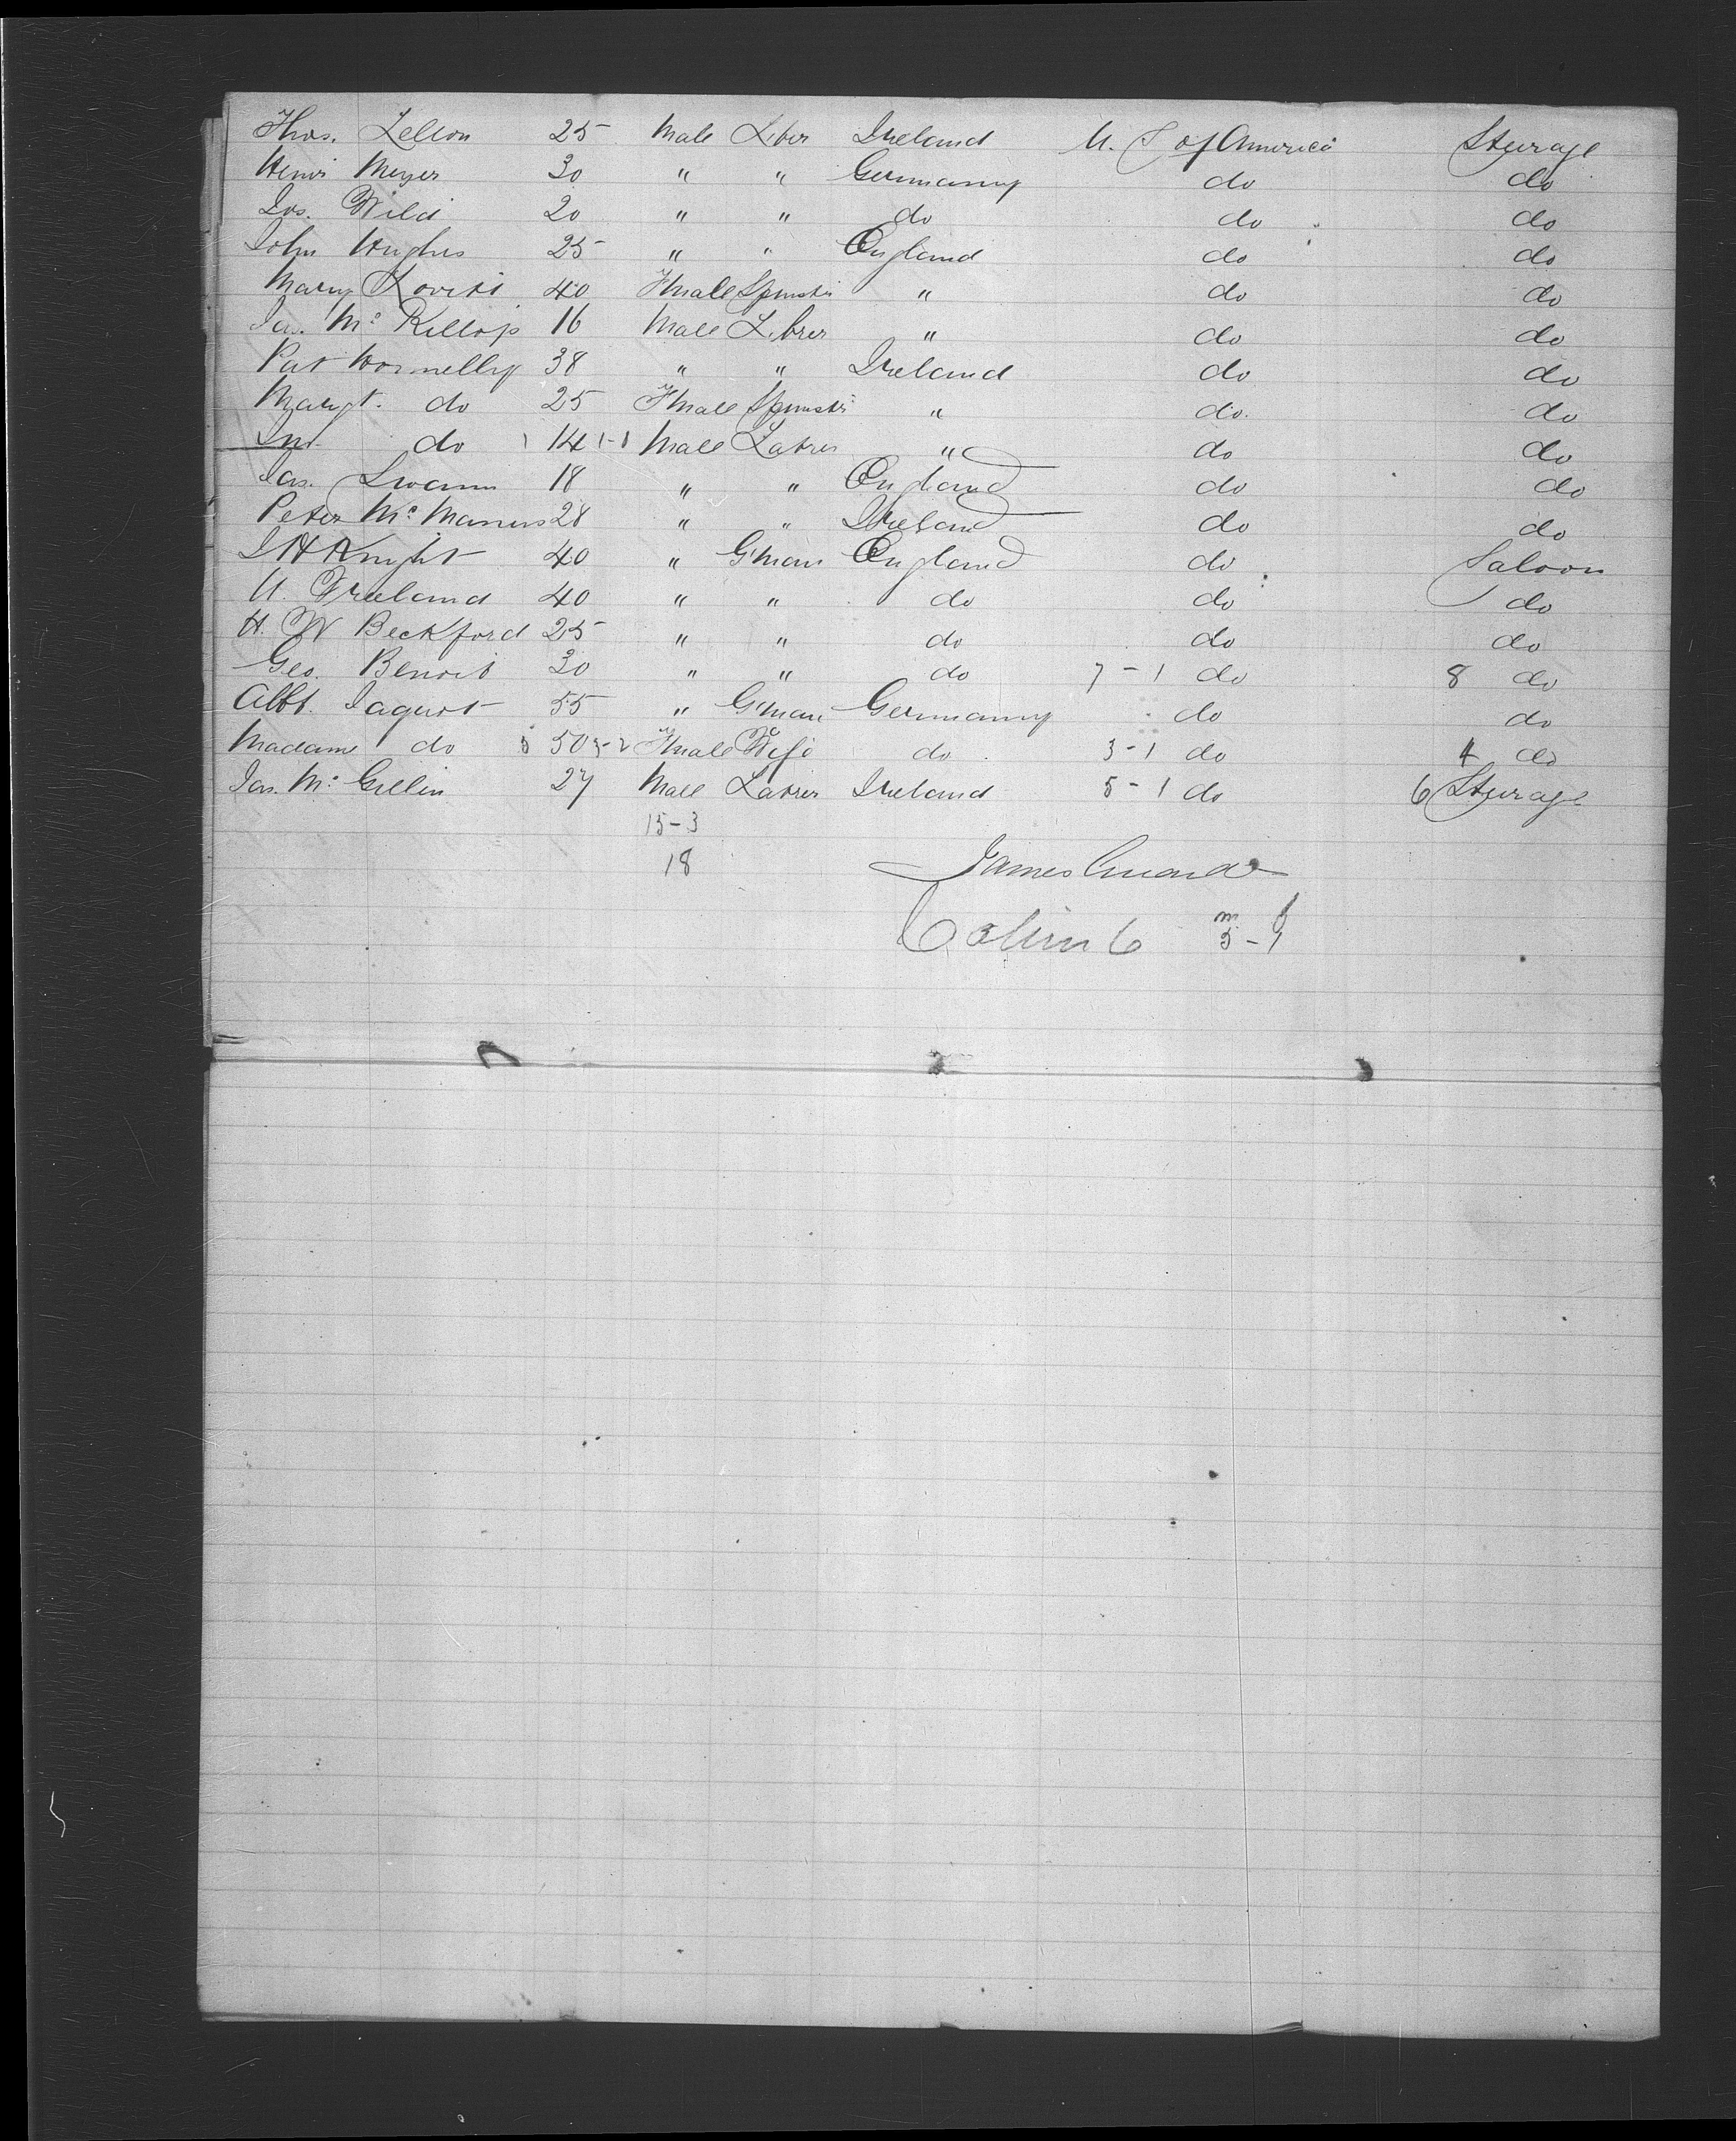 Thos. Lelton 25 Male L.ber Ireland U. S of America Steerage
Henri Meyer 30 " " Germany do do
Jos. Wild 20 " " do do do
John Hughes 25 " " England do do
Mary 40 Fmale Spinster " do do
Jas. Mc Killop 16 Male L.brer " do do
Pat Donnelly 38 " " Ireland do do
Margt. do 25 Fmale Spinster " do. do
Inf. do 1 14 1-1 Male Labrer " do do
Jas. Swann 18 " " England do do
Peter Mc Manus 28 " " Ireland do do
J H Knight 40 " G'man England do Saloon
U. Freeland 40 " " do do do
H. W Beckford 25 " " do do do
Geo. Benoit 30 " " do 7-1 do 8 do
Albt. Jaquot 55 " G'man Germany do do
Madame do 5 50 3-2 Fmale Wife do 3-1 do 4 do
Jas. Mc Gillin 27 Male Labrer Ireland 5-1 do 6 Steerage
15-3
18 James
Cabin 6 m 5 - f 1